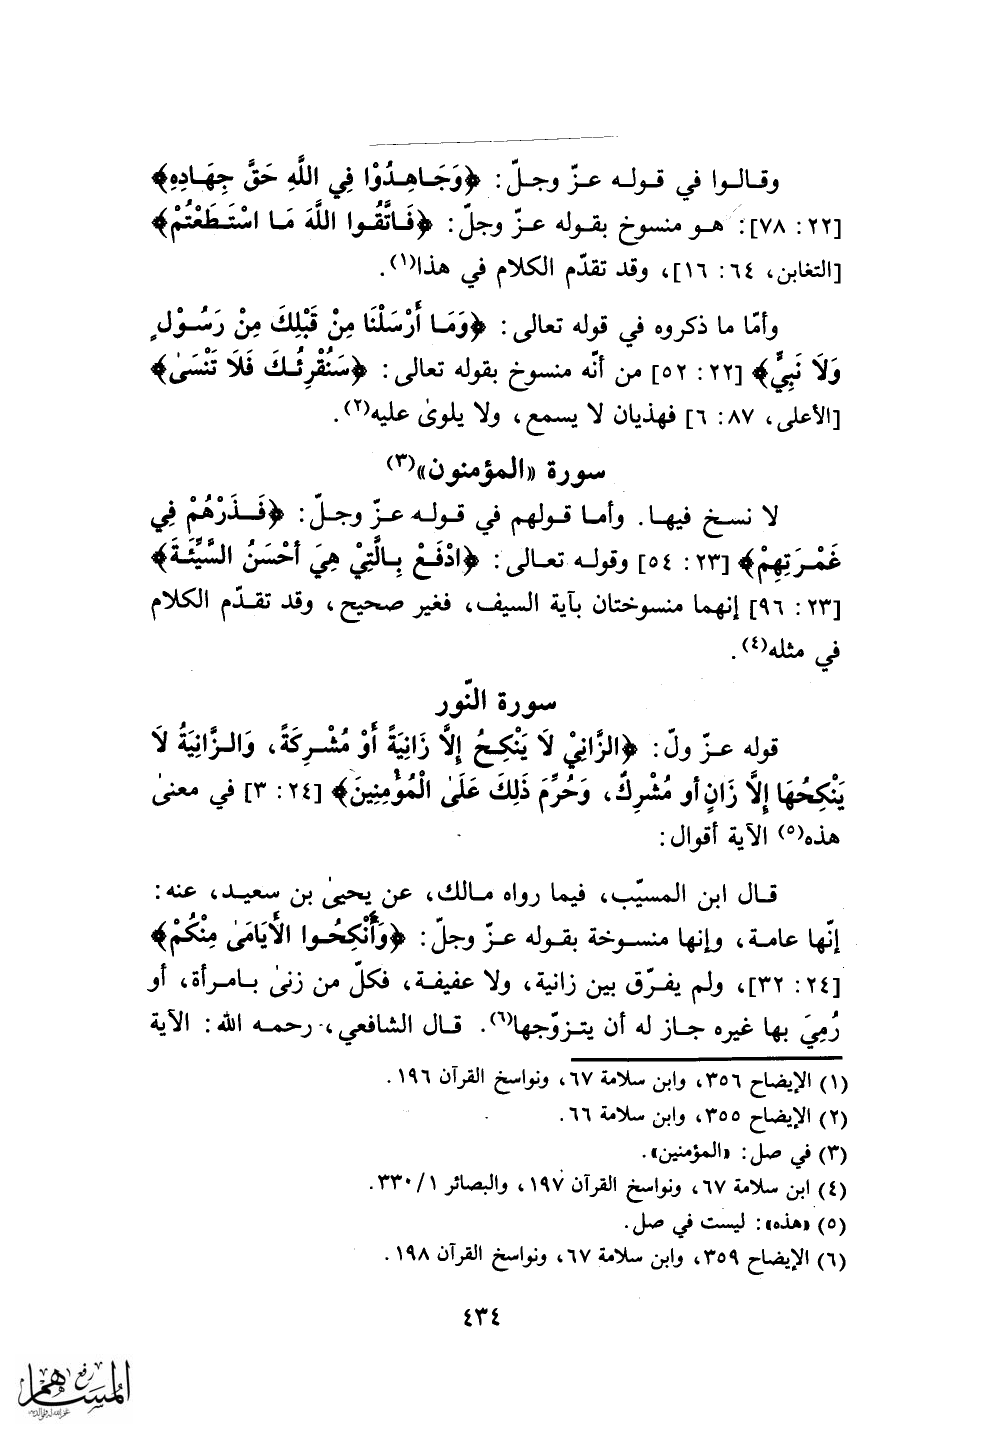 وقالوا في قوله عزّ وجلّ: ﴿وَجَاهِدُوْا فِي اللَّهِ حَقَّ جِهَادِهِ﴾
[٢٢: ٧٨]: هو منسوخ بقوله عزّ وجلّ: ﴿فَاتَّقُوا اللَّهَ مَا اسْتَطَعْتُمْ﴾
[التغابن، ٦٤: ١٦]، وقد تقدّم الكلام في هذا(١).
وأمّا ما ذكروه في قوله تعالى: ﴿وَمَا أَرْسَلْنَا مِنْ قَبْلِكَ مِنْ رَسُوْلٍ
وَلَا نَبِيٍّ﴾ [٢٢: ٥٢] من أنّه منسوخ بقوله تعالى: ﴿سَنُقْرِئُكَ فَلَا تَنْسَىٰ﴾
[الأعلى، ٨٧: ٦] فهذيان لا يسمع، ولا يلوىٰ عليه(٢).
سورة «المؤمنون»(٣)
لا نسخ فيها. وأما قولهم في قوله عزّ وجلّ: ﴿فَذَرْهُمْ فِي
غَمْرَتِهِمْ﴾ [٢٣: ٥٤] وقوله تعالى: ﴿ادْفَعْ بِالَّتِيْ هِيَ أَحْسَنُ السَّيِّئَةَ﴾
[٢٣: ٩٦] إنهما منسوختان بآية السيف، فغير صحيح، وقد تقدّم الكلام
في مثله(٤).
سورة النّور
قوله عزّ ولّ: ﴿الزَّانِيْ لَا يَنْكِحُ إِلَّا زَانِيَةً أَوْ مُشْرِكَةً، وَالزَّانِيَةُ لَا
يَنْكِحُهَا إِلَّا زَانٍ أو مُشْرِكٌ، وَحُرِّمَ ذَلِكَ عَلَىٰ الْمُؤْمِنِينَ﴾ [٢٤: ٣] في معنىٰ
هذه(٥) الآية أقوال:
قال ابن المسيّب، فيما رواه مالك، عن يحيىٰ بن سعيد، عنه:
إنّها عامة، وإنها منسوخة بقوله عزّ وجلّ: ﴿وَأَنْكِحُوا الأَيَامَىٰ مِنْكُمْ﴾
[٢٤: ٣٢]، ولم يفرّق بين زانية، ولا عفيفة، فكلّ من زنىٰ بامرأة، أو
رُمِيَ بها غيره جاز له أن يتزوّجها(٦). قال الشافعي، رحمه الله: الآية
(١) الإيضاح ٣٥٦، وابن سلامة ٦٧، ونواسخ القرآن ١٩٦.
(٢) الإيضاح ٣٥٥، وابن سلامة ٦٦.
(٣) في صل: «المؤمنين».
(٤) ابن سلامة ٦٧، ونواسخ القرآن ١٩٧، والبصائر ١/٣٣٠.
(٥) «هذه»: ليست في صل.
(٦) الإيضاح ٣٥٩، وابن سلامة ٦٧، ونواسخ القرآن ١٩٨.
٤٣٤